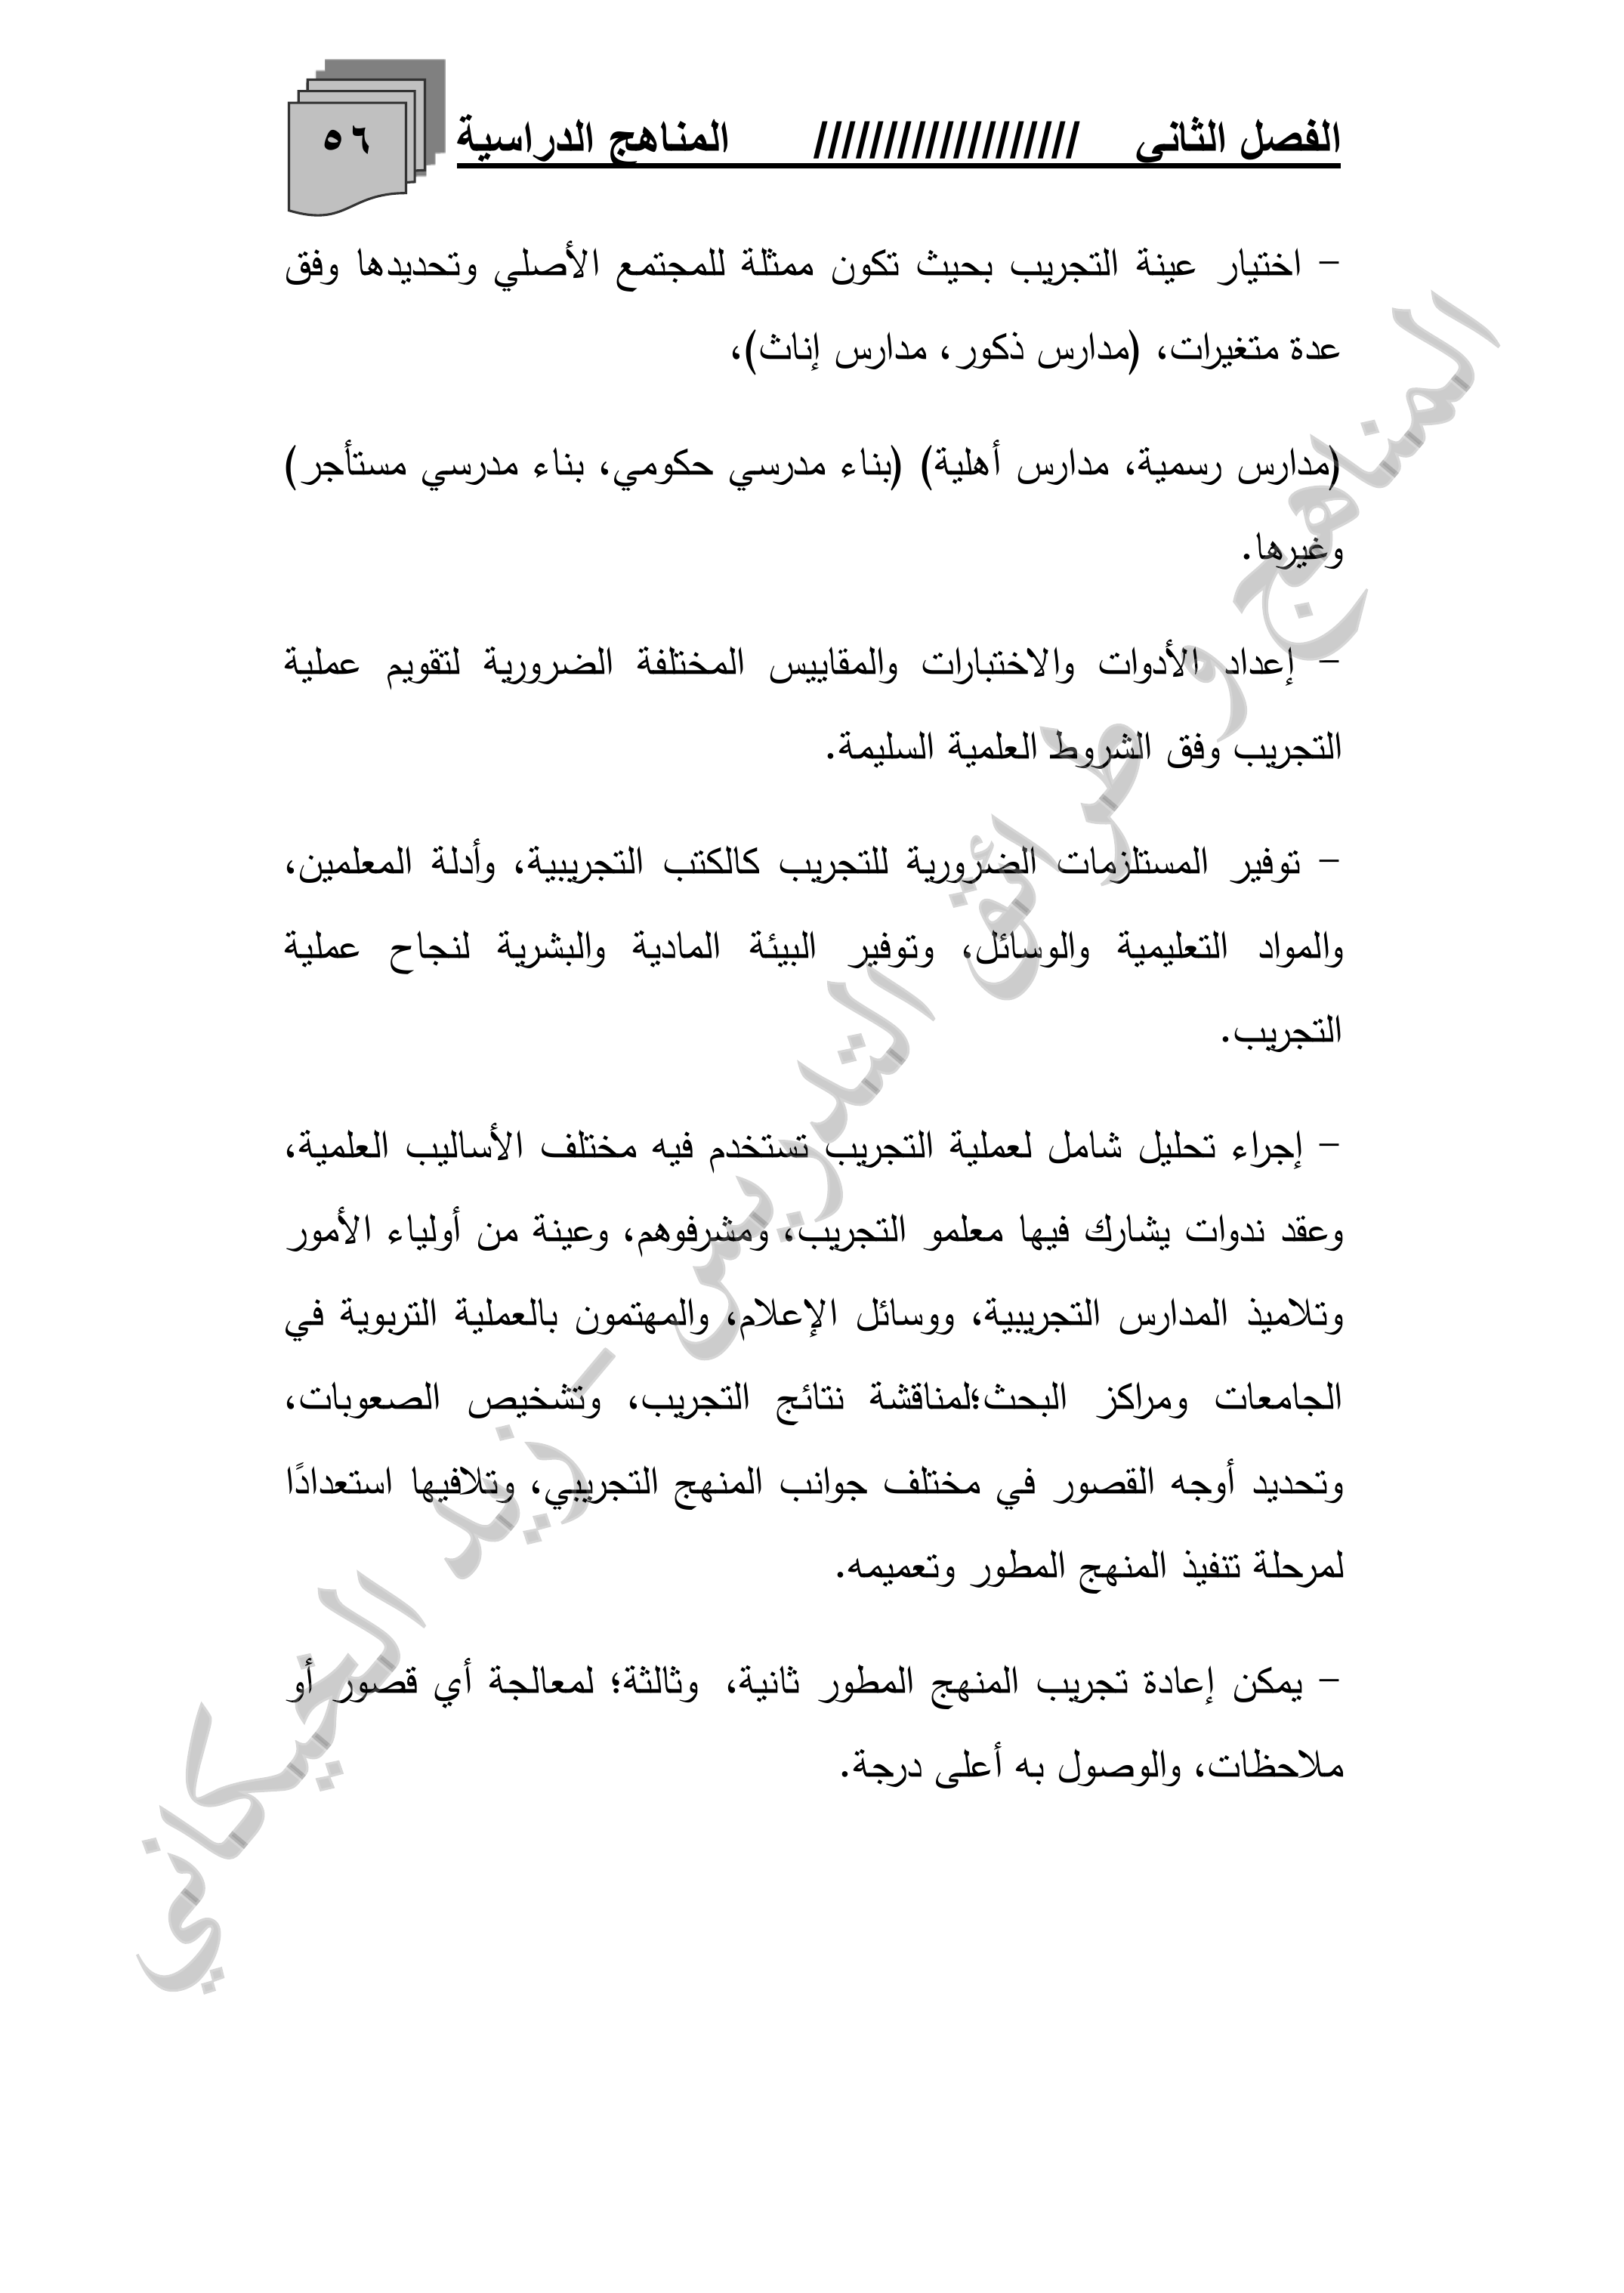 الفصل الثاني /////////////////// المناهج الدراسية ٥٦
- اختيار عينة التجريب بحيث تكون ممثلة للمجتمع الأصلي وتحديدها وفق
عدة متغيرات، (مدارس ذكور، مدارس إناث)،
(مدارس رسمية، مدارس أهلية) (بناء مدرسي حكومي، بناء مدرسي مستأجر)
وغيرها.
- إعداد الأدوات والاختبارات والمقاييس المختلفة الضرورية لتقويم عملية
التجريب وفق الشروط العلمية السليمة.
- توفير المستلزمات الضرورية للتجريب كالكتب التجريبية، وأدلة المعلمين،
والمواد التعليمية والوسائل، وتوفير البيئة المادية والبشرية لنجاح عملية
التجريب.
- إجراء تحليل شامل لعملية التجريب تستخدم فيه مختلف الأساليب العلمية،
وعقد ندوات يشارك فيها معلمو التجريب، ومشرفوهم، وعينة من أولياء الأمور
وتلاميذ المدارس التجريبية، ووسائل الإعلام، والمهتمون بالعملية التربوية في
الجامعات ومراكز البحث؛لمناقشة نتائج التجريب، وتشخيص الصعوبات،
وتحديد أوجه القصور في مختلف جوانب المنهج التجريبي، وتلافيها استعدادًا
لمرحلة تنفيذ المنهج المطور وتعميمه.
- يمكن إعادة تجريب المنهج المطور ثانية، وثالثة؛ لمعالجة أي قصور أو
ملاحظات، والوصول به أعلى درجة.
المناهج و طرائق التدريس – زيد الخيكاني